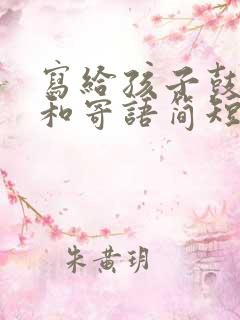 寫給孩子鼓
和寄語簡短
朱黃玥